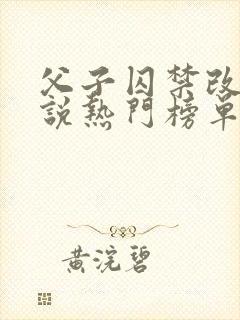 父子囚禁改
說熱門榜單
黃浣碧